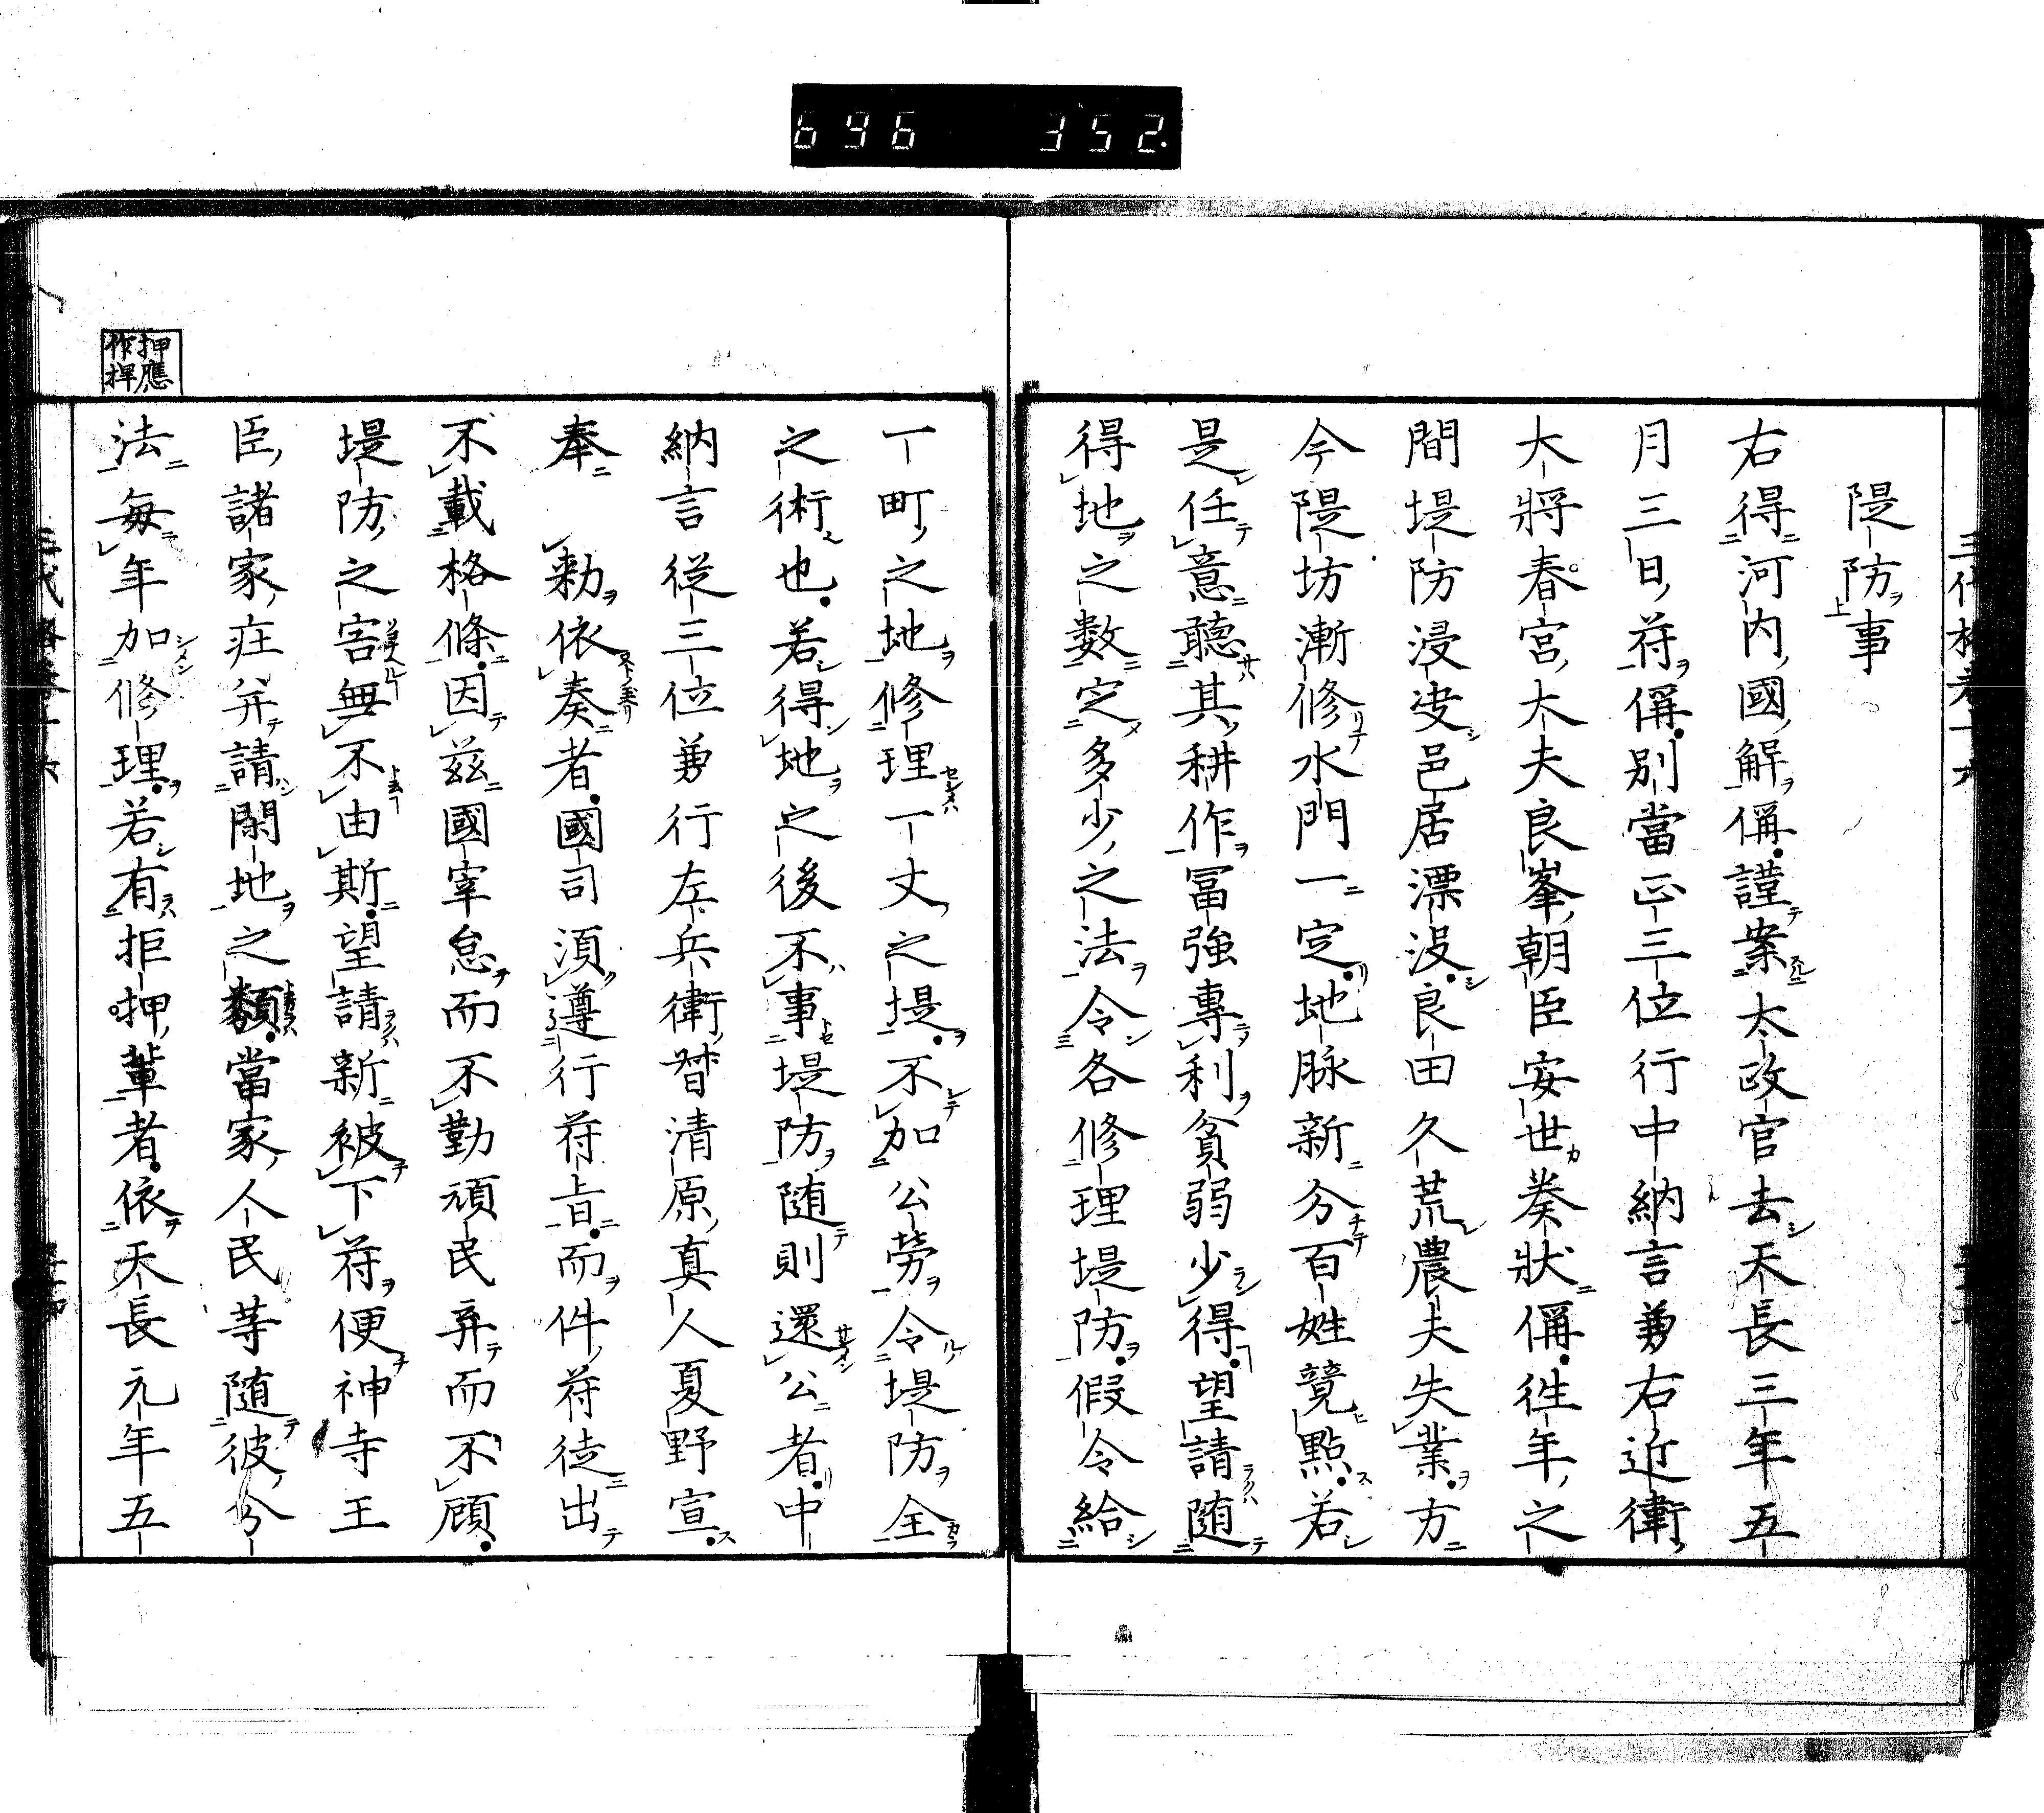 696 352.
隄防事
右得河内國解偁謹案太政官去天長三年五
月三日符偁別當正三位行中納言兼右近衛
大將春宮大夫良峯朝臣安世奏狀偁徃年之
間堤防浸决邑居漂没良田久荒農夫失業方
今隄坊漸修水門一定地脉新分百姓競點若
是任意聽其耕作冨強專利貧弱少得望請随
得地之数定多少之法令各修理堤防假令給
一町之地修理一丈之堤不加公勞令堤防全
之術也若得地之後不事堤防随則還公者中
納言從三位兼行左兵衛督清原真人夏野宣
奉　勅依奏者國司湏遵行符旨而件符徒出
不載格條因兹國宰怠而不勤頑民弃而不顧
堤防之害無不由斯望請新被下符便神寺王
臣諸家庄并請閑地之類當家人民等随彼分
法毎年加修理若有拒押軰者依天長元年五
押應
作捍